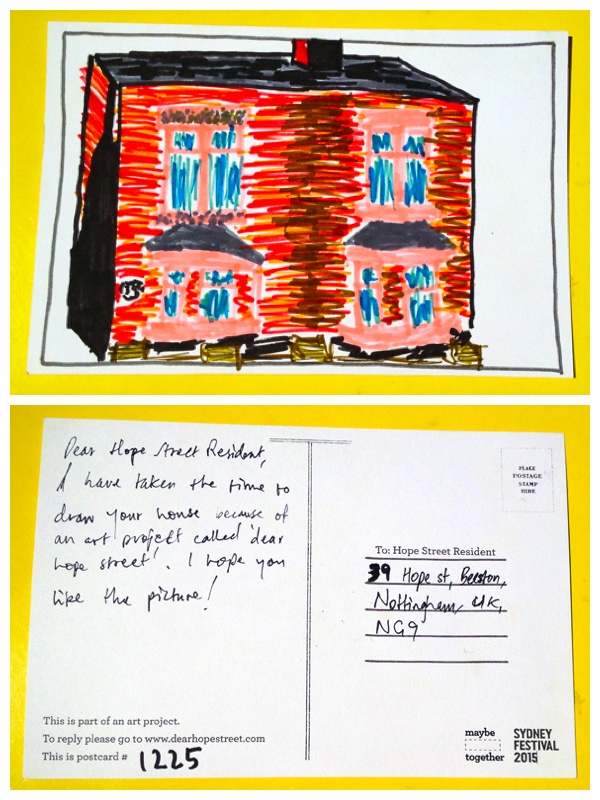 Dear Hope Street Resident,
I have taken the time to
draw your house because of
an art project called 'dear
hope street'. I hope you
like the picture!
This is part of an art project.
To reply please go to www.dearhopestreet.com
This is postcard # 1225
PLACE
POSTAGE
STAMP
HERE
To: Hope Street Resident
39 Hope st, Beeston,
Nottingham, UK,
NG9
maybe
together
SYDNEY
FESTIVAL
2015